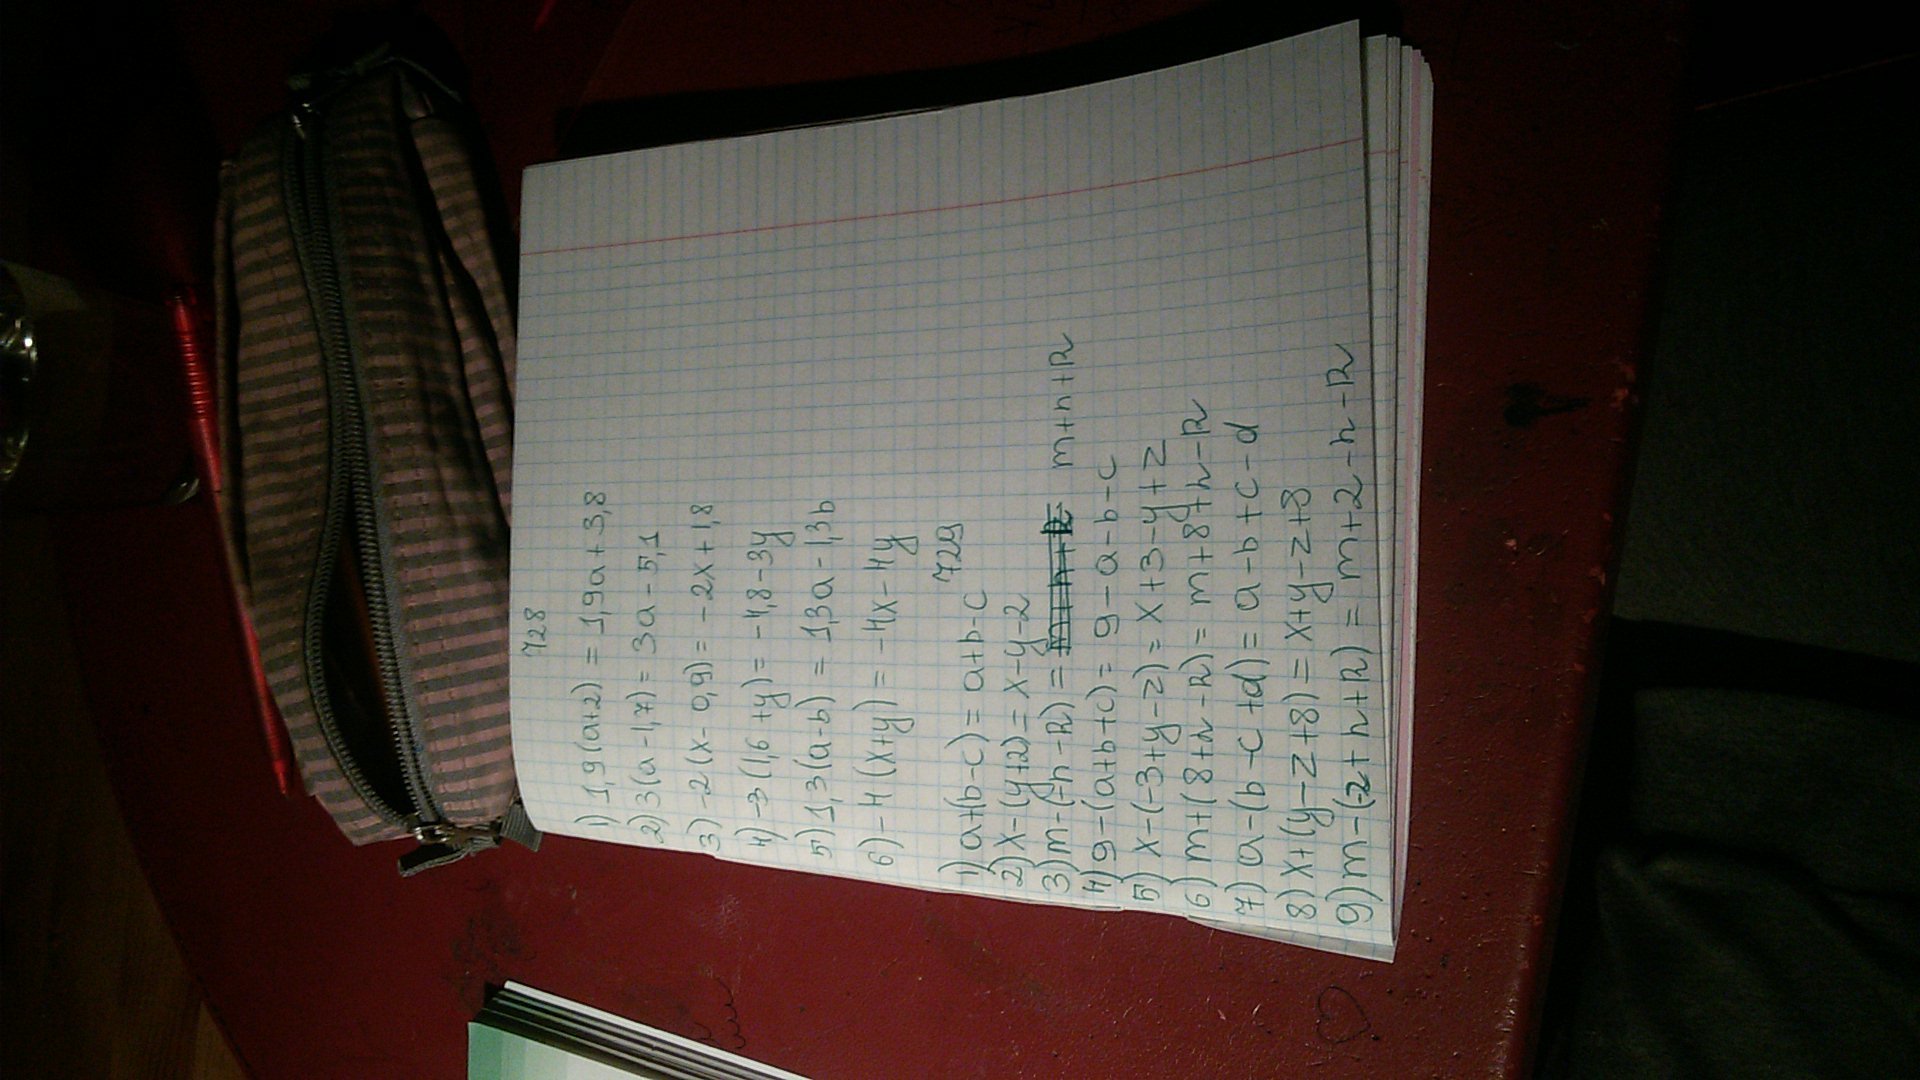 728
1) 1,9(a+2) = 1,9a+3,8
2) 3(a-1,7) = 3a-5,1
3) -2(x-0,9) = -2x+1,8
4) -3(1,6+y) = -4,8-3y
5) 1,3(a-b) = 1,3a-1,3b
6) -4(x+y) = -4x-4y
729
1) a+(b-c) = a+b-c
2) x-(y+2) = x-y-2
3) m-(-n-k) = m+n+k
4) 9-(a+b+c) = 9-a-b-c
5) x-(-3+y-z) = x+3-y+z
6) m+(8+n-k) = m+8+n-k
7) a-(b-c+d) = a-b+c-d
8) x+(y-z+8) = x+y-z+8
9) m-(-2+n+k) = m+2-n-k